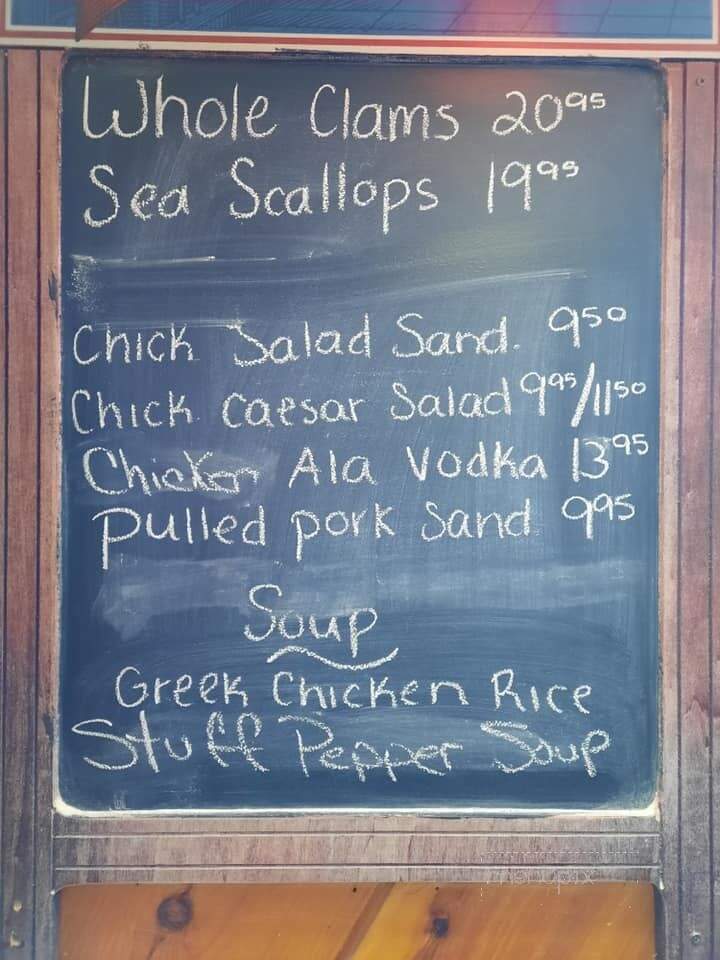 Whole Clams 20⁹⁵
Sea Scallops 19⁹⁵
Chick Salad Sand. 9⁵⁰
Chick Caesar Salad 9⁹⁵/11⁵⁰
Chicken Ala Vodka 13⁹⁵
pulled pork Sand 9⁹⁵
Soup
Greek Chicken Rice
Stuff Pepper Soup